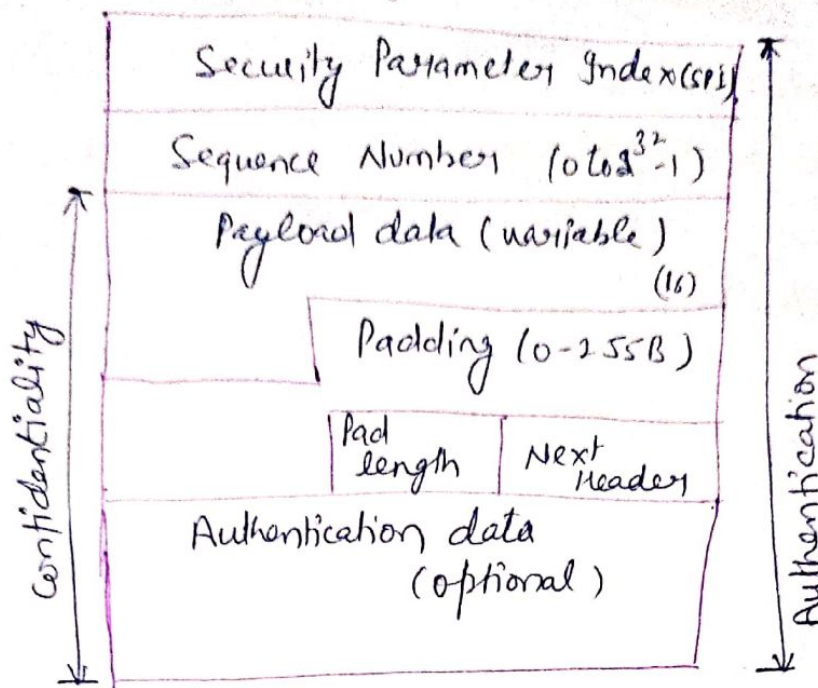 Security Parameter Index (SPI)
Sequence Number (0 to 2^32-1)
Payload data (variable)
(16)
Padding (0-255B)
Pad
length
Next
Header
Authentication data
(optional)
Confidentiality
Authentication